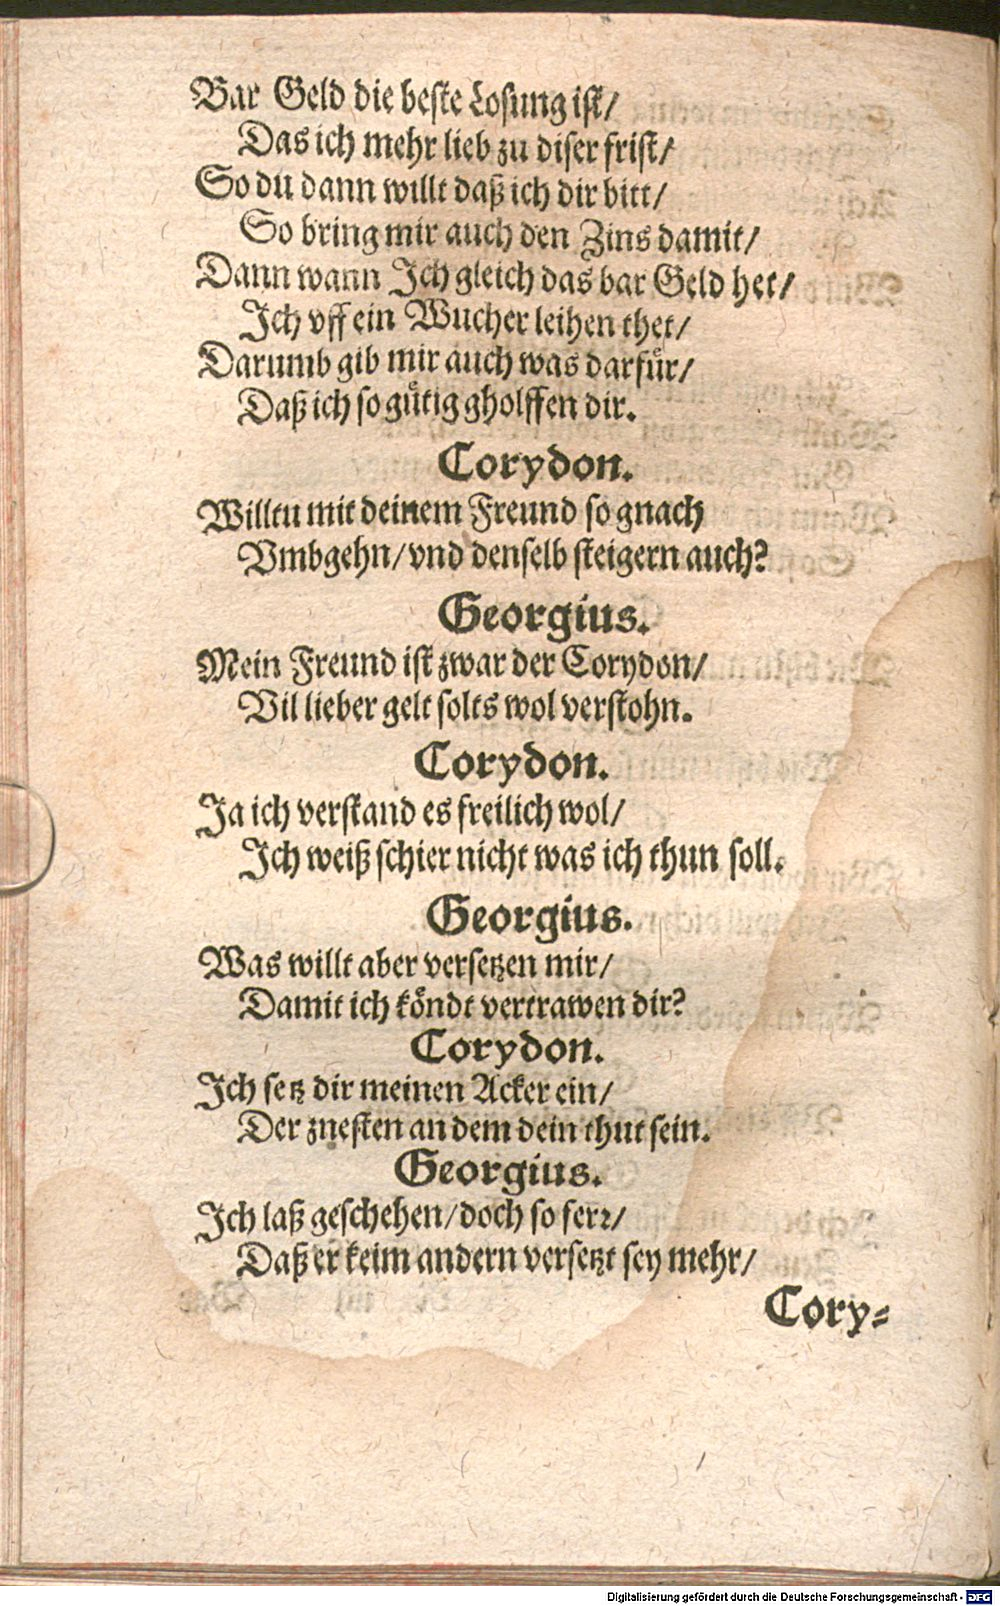 Bar Geld die beste Losung ist/
Das ich mehr lieb zu diser frist/
So du dann willt daß ich dir bitt/
So bring mir auch den Zins damit/
Dann wann Ich gleich das bar Geld het/
Ich vff ein Wucher leihen thet/
Darumb gib mir auch was darfuͤr/
Daß ich so guͤtig gholffen dir.
Corydon.
Willtu mit deinem Freund so gnach
Vmbgehn/vnd denselb steigern auch?
Georgius.
Mein Freund ist zwar der Corydon/
Vil lieber gelt solts wol verstohn.
Corydon.
Ja ich verstand es freilich wol/
Ich weiß schier nicht was ich thun soll.
Georgius.
Was willt aber versetzen mir/
Damit ich koͤndt vertrawen dir?
Corydon.
Ich setz dir meinen Acker ein/
Der znesten an dem dein thut sein.
Georgius.
Ich laß geschehen/doch so ferꝛ/
Daß er keim andern versetzt sey mehr/
Cory-
Digitalisierung gefördert durch die Deutsche Forschungsgemeinschaft - DFG